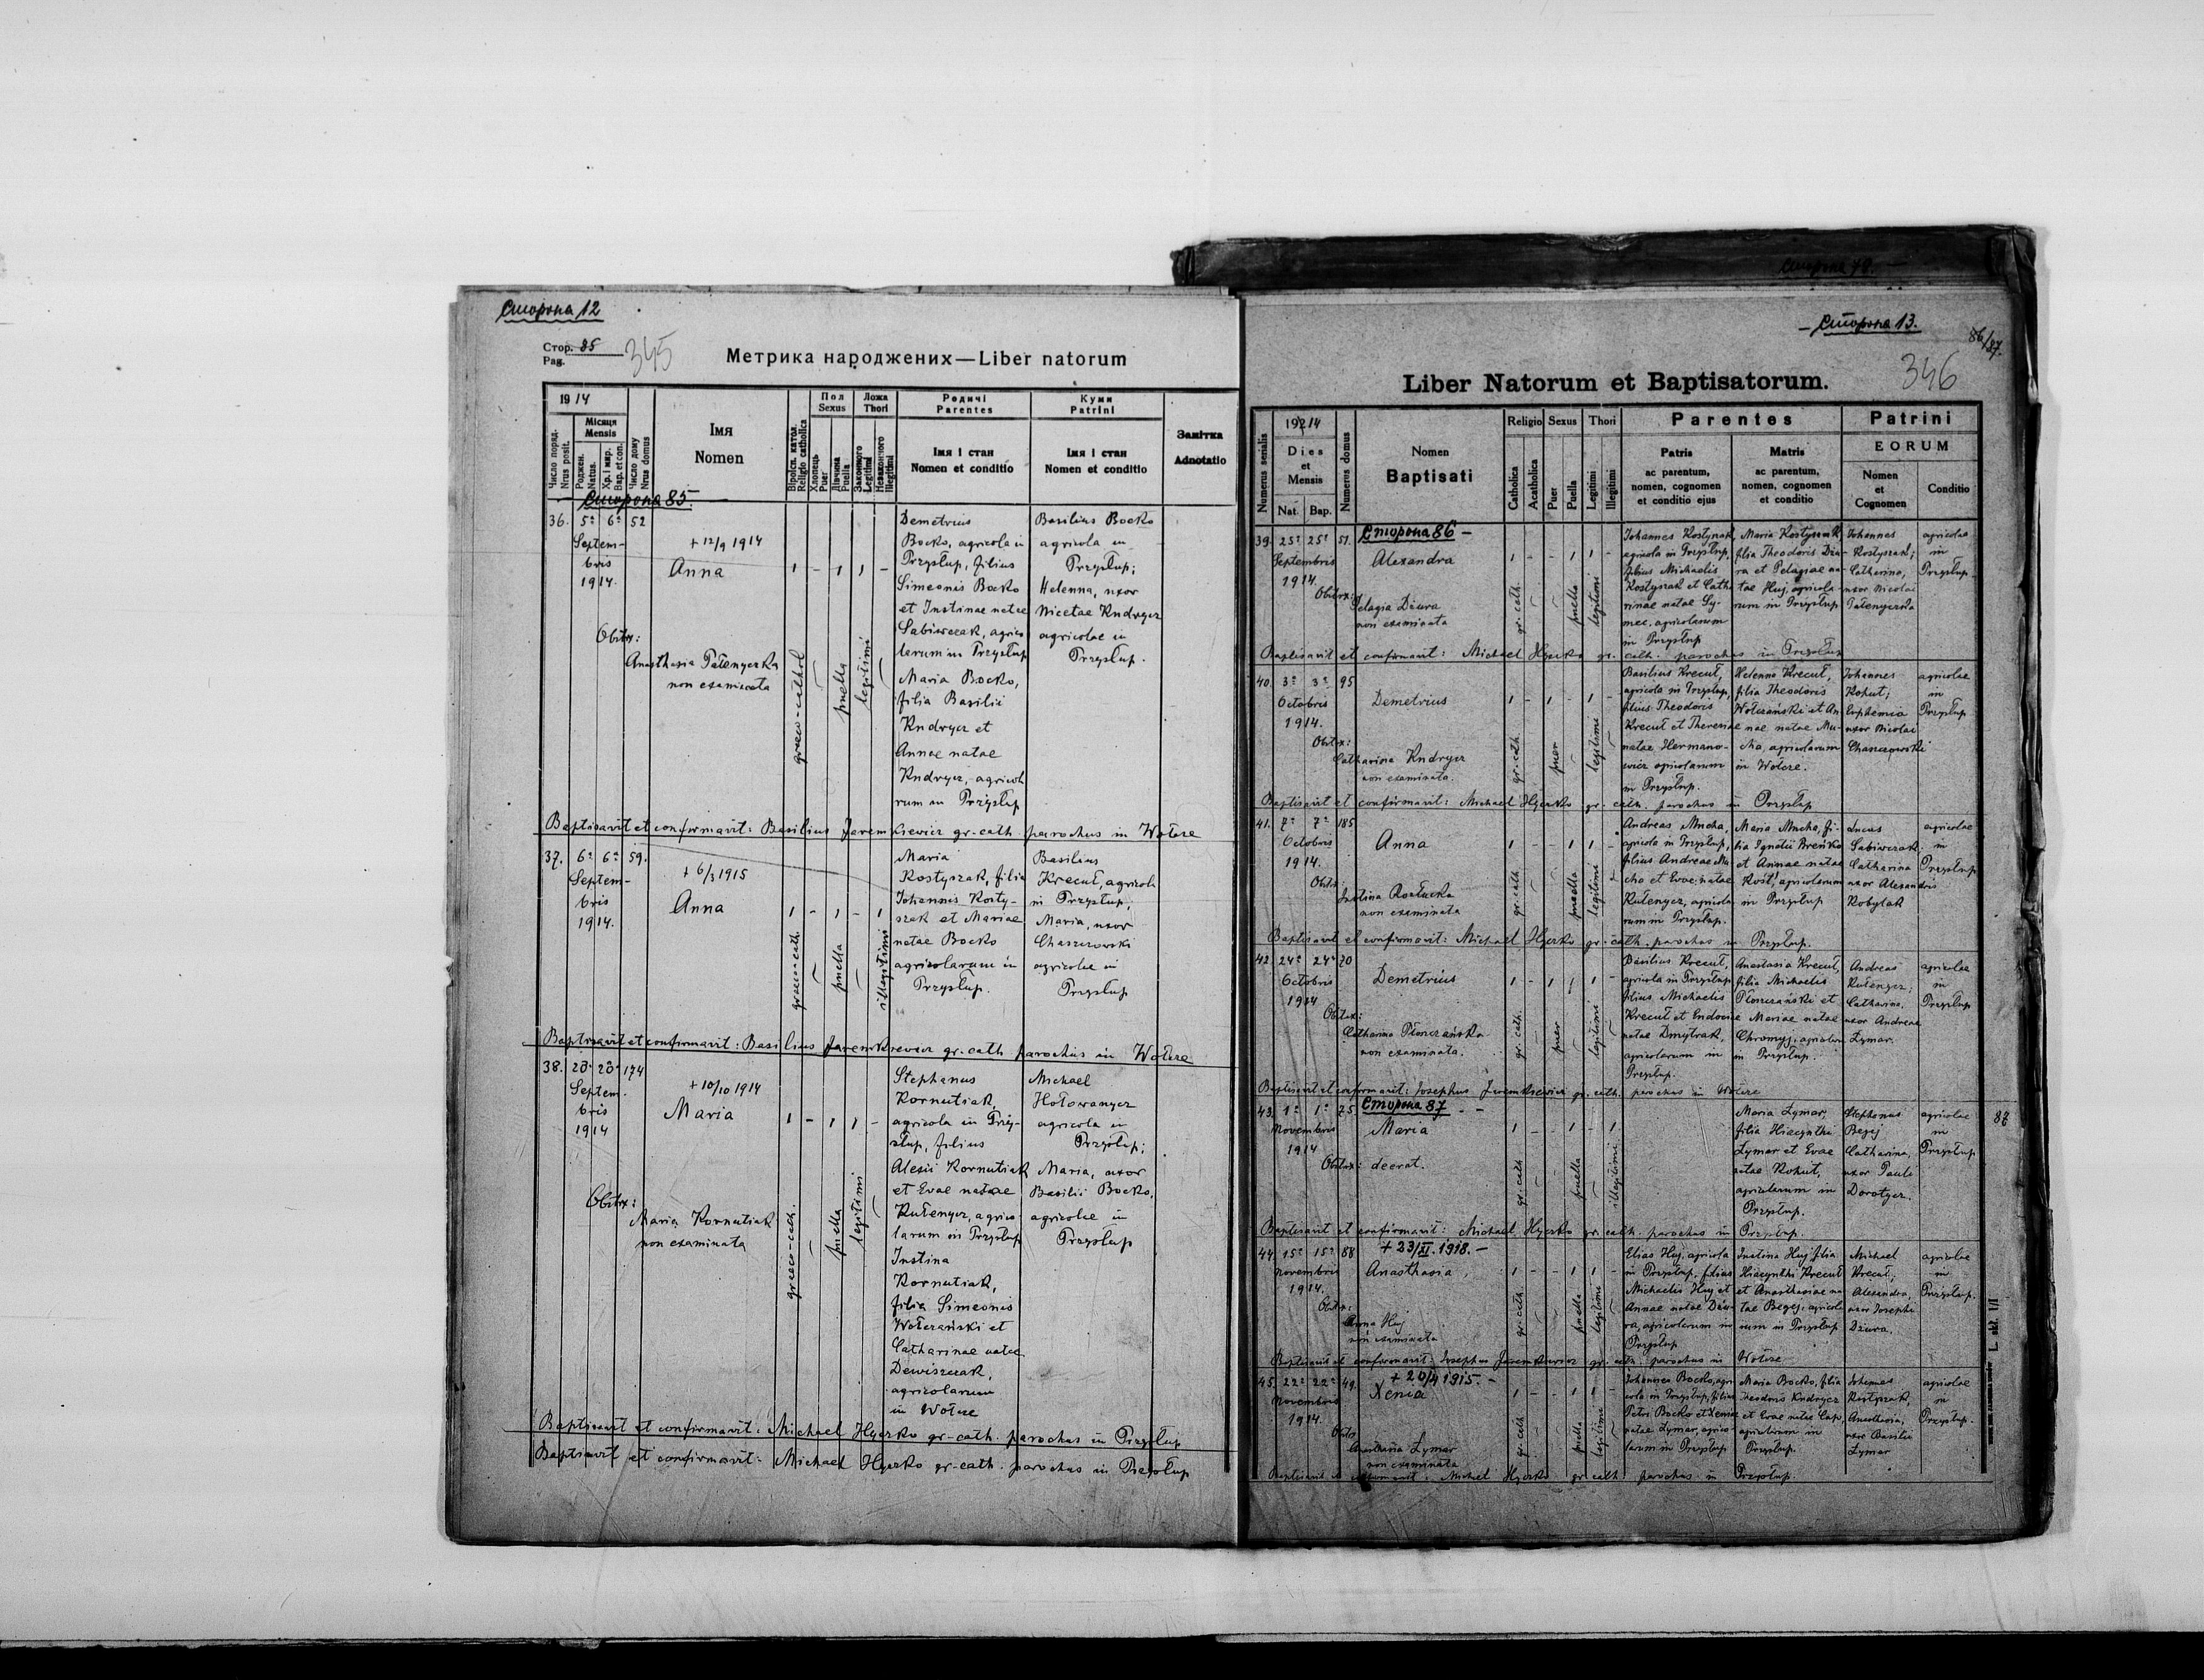 Сторона 12
Стор. 85
Pag.
345
Метрика народжених—Liber natorum
1914
Число поряд.
Nrus posit.
Місяця
Mensis
Роджен.
Natus.
Хр. і мир.
Bap. et con.
Число дому
Nrus domus
Імя
Nomen
Віроісп. катол.
Religio catholica
Пол
Sexus
Хлопець
Puer
Дівчина
Puella
Ложа
Thori
Законного
Legitimi
Незаконного
Illegitimi
Родичі
Parentes
Імя і стан
Nomen et conditio
Куми
Patrini
Імя і стан
Nomen et conditio
Замітка
Adnotatio
Сторона 85.
36. 5a 6a 52
Septem-
bris
1914.
+ 12/9 1914
Anna
1 - 1 1 -
Obstx:
Anasthasia Pałenyczka
non examinata
graeco-cathol
puella
legitimi
Demetrius
Bocko, agricola in
Przysłup, filius
Simeonis Bocko
et Justinae natae
Sabiwczak, agrico
larum in Przysłup
Maria Bocko,
filia Basilii
Kndrycz et
Annae natae
Kndrycz, agricol
rum in Przysłup
Basilius Bocko
agricola in
Przysłup;
Helenna, uxor
Nicetae Kndrycz
agricolae in
Przysłup.
Baptisavit et confirmavit: Basilius Jaremkiewicz gr-cath. parochus in Wołcze
37. 6a 6a 59.
Septem-
bris
1914.
+ 6/3 1915
Anna
1 - 1 - 1
graeco-cath.
puella
illegitimi
Maria
Kostyszak, filia
Johannis Kosty-
szak et Mariae
natae Bocko
agricolarum in
Przysłup.
Basilius
Krecuł, agricola
in Przysłup;
Maria, uxor
Chaszczowski
agricolae in
Przysłup
Baptisavit et confirmavit: Basilius Jaremkiewicz gr-cath parochus in Wołcze
38. 28a 28a 174
Septem.
bris
1914
+ 10/10 1914
Maria
1 - 1 1 -
Obstx:
Maria Kornutiak
non examinata
graeco-cath.
puella
legitimi
Stephanus
Kornutiak,
agricola in Przy-
słup, filius
Alexii Kornutiak
et Evae natae
Kułenycz, agrico
larum in Przysłup
Justina
Kornutiak,
filia Simeonis
Wołczański et
Catharinae natae
Dewiszczak,
agricolarum
in Wołcze
Michael
Hołowanycz
agricola in
Przysłup;
Maria, uxor
Basilii Bocko,
agricolae in
Przysłup
Baptisavit et confirmavit: Michael Hyczko gr-cath. parochus in Przysłup
Baptisavit et confirmavit: Michael Hyczko gr-cath. parochus in Przysłup
Сторона 13.
86/87.
346
Liber Natorum et Baptisatorum.
Numerus serialis
1914
Dies
et
Mensis
Nat. Bap.
Numerus domus
Nomen
Baptisati
Religio
Catholica
Acatholica
Sexus
Puer
Puella
Thori
Legitimi
Illegitimi
Parentes
Patris
ac parentum,
nomen, cognomen
et conditio ejus
Matris
ac parentum,
nomen, cognomen
et conditio
Patrini
EORUM
Nomen
et
Cognomen
Conditio
Сторона 86 -
39. 25a 25a 51.
Septembris
1914.
Alexandra
1 - - 1 1 -
Obstx:
Pelagia Dziura
non examinata
gr. cath.
puella
legitimi
Johannes Kostyszak,
agricola in Przysłup,
filius Michaelis
Kostyszak et Cath
rinae natae Ly-
mec, agricolarum
in Przysłup
Maria Kostyszak,
filia Theodoris Dziu-
ra et Pelagiae na-
tae Huj, agricola-
rum in Przysłup
Johannes
Kostyszak;
Catharina,
uxor Nicolai
Pałenyczka
agricolae
in
Przysłup
Baptisavit et confirmavit: Michael Hyczko gr. cath. parochus in Przysłup
40. 3a 3a 95
Octobris
1914.
Demetrius
1 - 1 - 1 -
Obstx:
Catharina Kndrycz
non examinata.
gr-cath.
puer
legitimi
Basilius Krecuł,
agricola in Przysłup,
filius Theodoris
Krecuł et Theresiae
natae Hermano-
wicz agricolarum
in Przysłup.
Helenna Krecuł,
filia Theodoris
Wołczański et An
nae natae Mu-
cha, agricolarum
in Wołcze.
Johannes
Kohut;
Euphemia
uxor Nicolai
Chaszczowski
agricolae
in
Przysłup
Baptisavit et confirmavit: Michael Hyczko gr. cath. parochus in Przysłup
41. 7a 7a 185
Octobris
1914.
Anna
1 - - 1 1 -
Obstx
non examinata
gr-cath.
puella
legitimi
Andreas Mucha,
agricola in Przysłup,
filius Andreae Mu
cha et Evae natae
Kułenycz, agricola
rum in Przysłup.
Maria Mucha, fi-
lia Ignatii Breńko
et Annae natae
Kość, agricolarum
in Przysłup
Lucas
Sabiwczak,
Catharina
uxor Alexandris
Kobylak
agricolae
in
Przysłup
Baptisavit et confirmavit: Michael Hyczko gr-cath. parochus in Przysłup.
42. 24a 24a 70
Octobris
1914
Demetrius
1 - 1 1 -
Obstx:
Catharina Płonczańska
non examinata.
gr-cath.
puer
legitimi
Basilius Krecuł,
agricola in Przysłup
filius Michaelis
Krecuł et Eudociae
natae Dmytrak,
agricolarum in
Przysłup.
Anastasia Krecuł,
filia Michaelis
Płonczański et
Mariae natae
Chromyj, agricolar
in Przysłup.
Andreas
Kułenycz;
Catharina,
uxor Andreae
Lymar.
agricolae
in
Przysłup
Baptisavit et confirmavit: Josephus Jaremkiewicz gr. cath. parochus in Wołcze
Сторона 87 - -
43. 1a 1a 75.
Novembris
1914
Maria
1 - - 1 - 1
Obstx: deerat.
gr-cath
puella
illegitimi
Maria Lymar,
filia Hiacynthi
Lymar et Evae
natae Kohut,
agricolarum in
Przysłup.
Stephanus
Begej
Catharina,
uxor Pauli
Dorotycz.
agricolae
in
Przysłup
87
Baptisavit et confirmavit: Michael Hyczko gr. cath. parochus in Przysłup.
44. 15a 15a 88
Novembris
1914.
+ 23/XI. 1918. -
Anasthasia
1 - - 1 1 -
Obstx:
Anna Huj
non examinata
gr-cath.
puella
legitimi
Elias Huj, agricola
in Przysłup, filius
Michaelis Huj et
Annae natae Dziu-
ra, agricolarum in
Przysłup
Justina Huj filia
Hiacynthi Krecuł
et Anasthasiae na
tae Begej, agricol
rum in Przysłup
Michael
Krecuł;
Alexandra,
uxor Josephi
Dziura.
agricolae
in
Przysłup.
Baptisavit et confirmavit: Josephus Jaremkiewicz gr. cath. parochus in Wołcze
45. 22a 22a 49.
Novembris
1914.
+ 20/4 1915. -
Xenia
1 - - 1 1 -
Obstx
Anasthasia Lymar
non examinata
gr-cath
puella
legitimi
Johannes Bocko, agri
cola in Przysłup, filius
Petri Bocko et Xeniae
natae Lymar, agrico-
larum in Przysłup
Maria Bocko, filia
Theodoris Kndrycz
et Evae natae Cap,
agricolarum in
Przysłup.
Johannes
Kostyszak,
Anasthasia,
uxor Basilii
Lymar
agricolae
in
Przysłup.
Baptisavit et confirmavit: Michael Hyczko gr cath parochus in Przysłup.